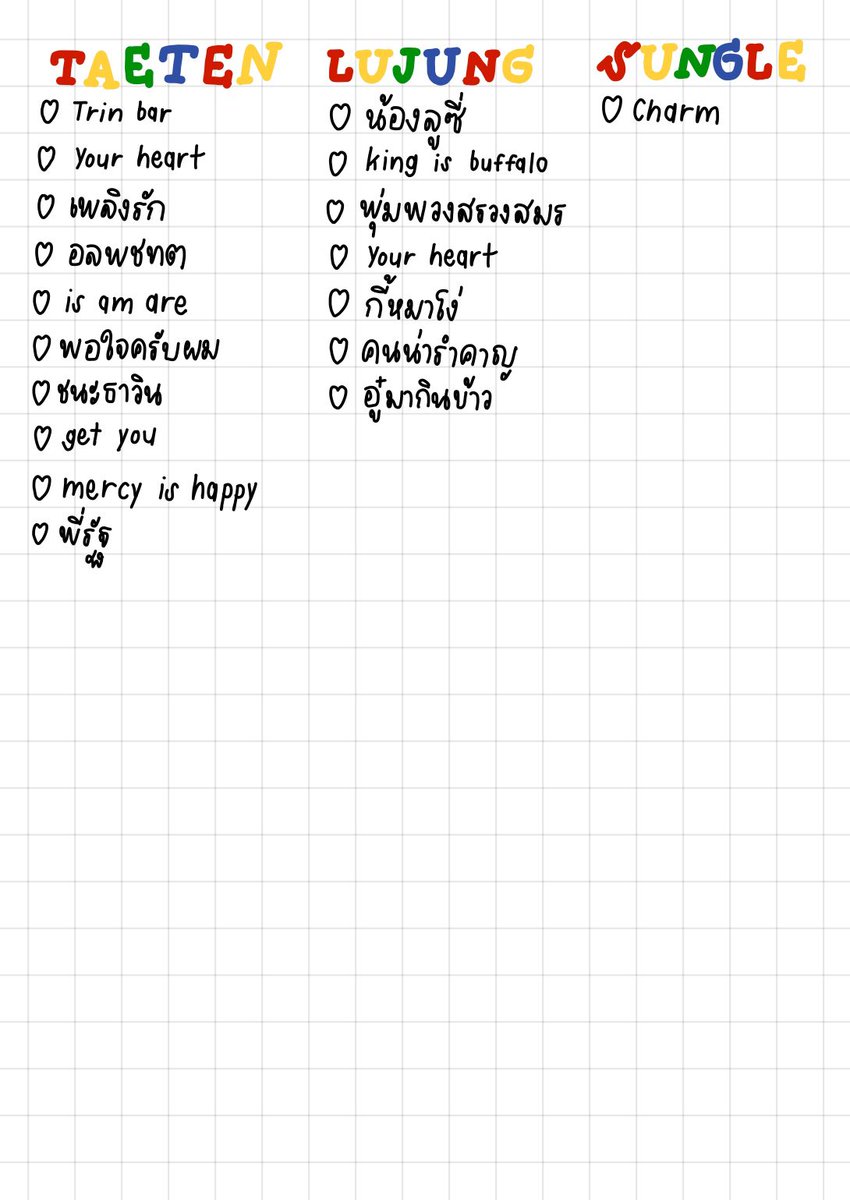 TAETEN
Trin bar
Your heart
เพลิงรัก
อลพชทต
is am are
พอใจครับผม
ชนะธาวิน
get you
mercy is happy
พี่รัฐ
LUJUNG
น้องลูซี่
king is buffalo
พุ่มพวงสรวงสมร
Your heart
กี้หมาโง่
คนน่ารำคาญ
อู๋มากินข้าว
SUNGLE
Charm